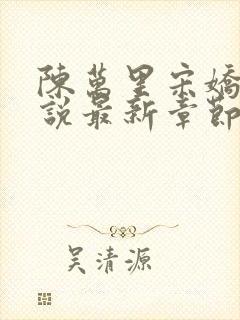 陳萬里宋嬌
說最新章節
吴清源